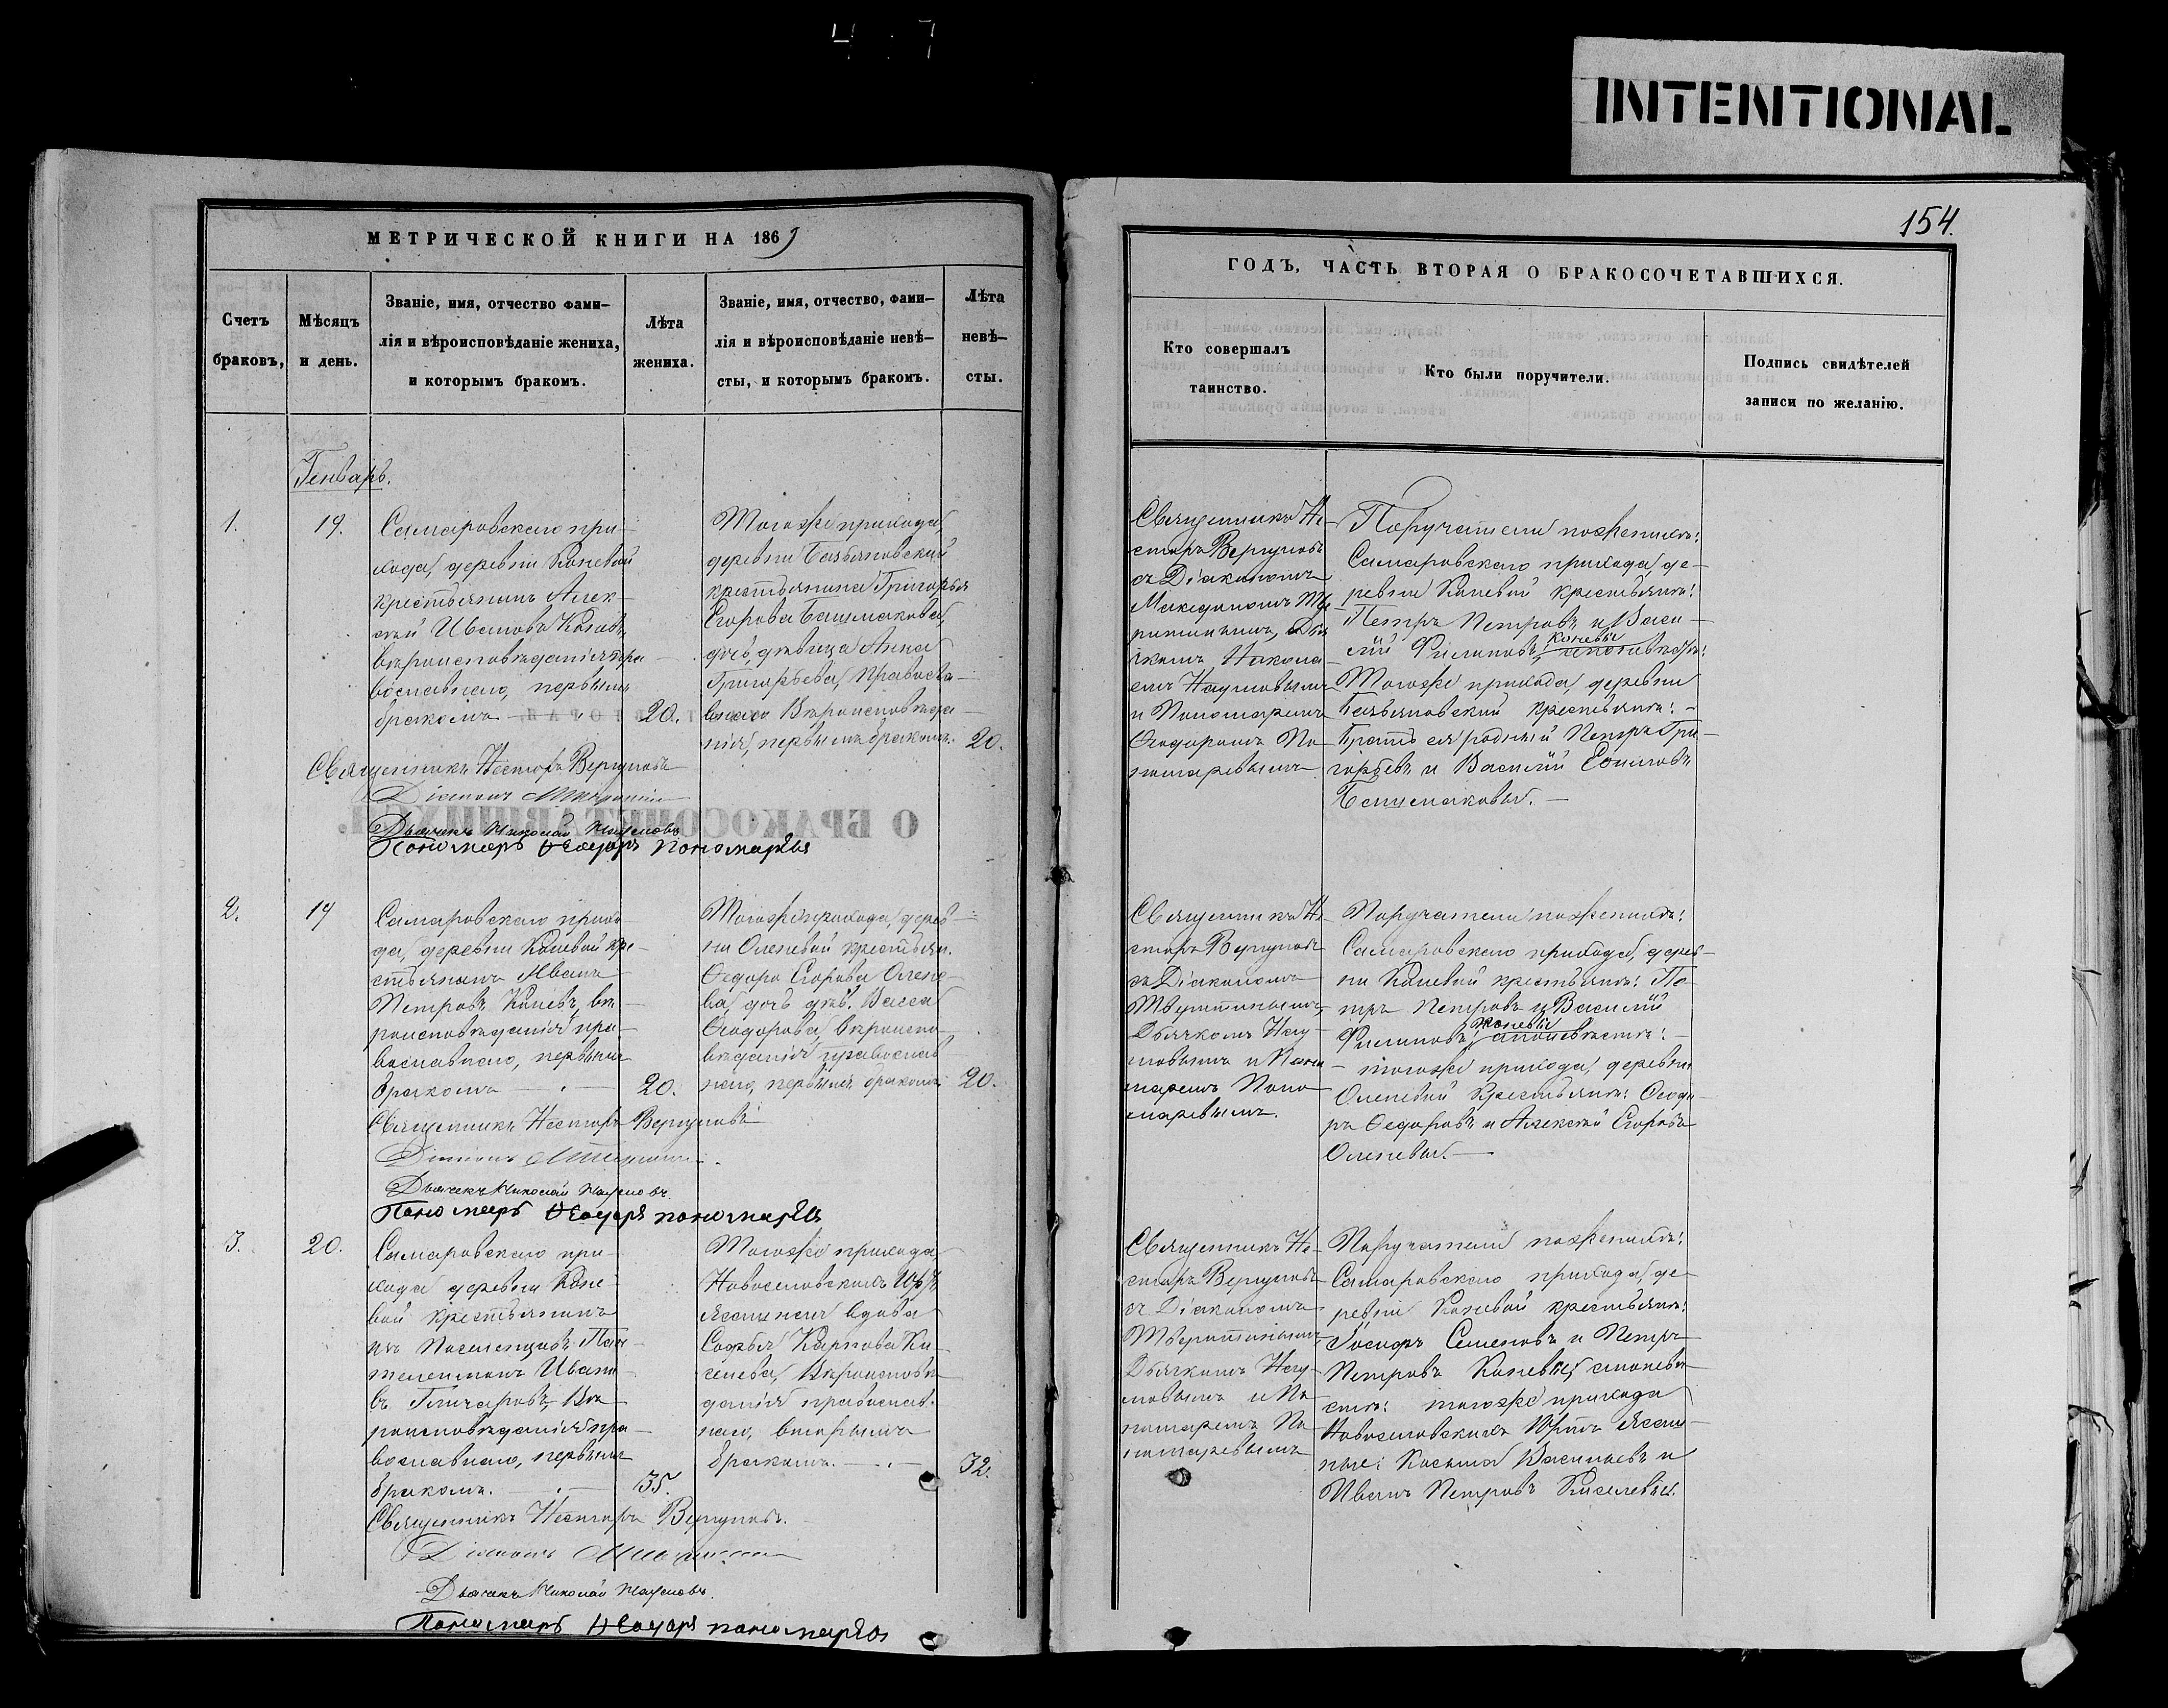 INTENTIONAL
154.
МЕТРИЧЕСКОЙ КНИГИ НА 1869
Счетъ браковъ,
Мѣсяцъ и день.
Званіе, имя, отчество фами-
лія и вѣроисповѣданіе жениха,
и которымъ бракомъ.
Лѣта жениха.
Званіе, имя, отчество, фами-
лія и вѣроисповѣданіе невѣ-
сты, и которымъ бракомъ.
Лѣта невѣ-
сты.
Генварь.
1.
19.
Самаровскаго при-
хода, деревни Коневой
крестьянинъ Алек-
сѣй Ивановъ Коневъ,
вѣроисповѣданія пра-
вославнаго, первымъ
бракомъ
20.
Тогоже прихода,
деревни Базьяновской
крестьянина Григорья
Егорова Башмакова,
дочь, дѣвица Анна
Григорьева, Правосла-
внаго Вѣроисповѣда-
нія, первымъ бракомъ.
20.
Священникъ Несторъ Вергуновъ
Діаконъ
Дьячекъ Николай Наумовъ
Пономарь Ѳеодоръ Пономаревъ
2.
19
Самаровскаго прихо-
да, деревни Коневой кре-
стьянинъ Иванъ
Петровъ Коневъ, вѣ-
роисповѣданія пра-
вославнаго, первымъ
бракомъ
20.
Тогоже прихода, дерев-
ни Оленевой крестьян.
Ѳедора Егорова Олене-
ва, дочь дѣв. Васса
Ѳеодорова, вѣроиспо-
вѣданія православ-
наго, первымъ бракомъ
20.
Священникъ Несторъ Вергуновъ
Діаконъ
Дьячекъ Николай Наумовъ.
Пономарь Ѳеодоръ Пономаревъ
3.
20.
Самаровскаго при-
хода деревни Коне-
вой крестьянинъ
изъ Поселенцовъ Пан-
телеимонъ Ивано-
въ Гончаровъ, Вѣ-
роисповѣданія пра-
вославнаго, первымъ
бракомъ.
35.
Тогоже прихода
Новоселовскихъ Юртъ
Ясашная вдова
Софья Карпова Ки-
селева, Вѣроисповѣ-
данія православ-
наго, вторымъ
бракомъ.
32.
Священникъ Несторъ Вергуновъ.
Діаконъ
Дьячекъ Николай Наумовъ.
Пономарь Ѳеодоръ Пономаревъ
ГОДЪ, ЧАСТЬ ВТОРАЯ О БРАКОСОЧЕТАВШИХСЯ.
Кто совершалъ
таинство.
Кто были поручители.
Подпись свидѣтелей
записи по желанію.
Священникъ Не-
сторъ Вергуновъ
съ Діакономъ
Македономъ Тве-
ритинымъ, Дья-
чкомъ Никола-
емъ Наумовымъ
и Пономаремъ
Ѳеодоромъ По-
номаревымъ
Поручатели по женихѣ:
Самаровскаго прихода, де-
ревни Коневой крестьяне:
Петръ Петровъ и Васи-
лій Филиповъ, Коневы
а по невѣстѣ:
Тогоже прихода, деревни
Базьяновской крестьяне: -
братъ ея родный Петръ Гри-
горьевъ и Василій
Башмаковы. —
Священникъ Не-
сторъ Вергуновъ
съ Діакономъ
Тверитинымъ,
Дьячкомъ Нау-
мовымъ и Поно-
маремъ Поно-
маревымъ.
Поручатели по женихѣ:
Самаровскаго прихода, дерев-
ни Коневой крестьяне: Пе-
тръ Петровъ и Василій
Филиповъ, Коневы
а по невѣстѣ: -
тогоже прихода, деревни
Оленевой Крестьяне: Ѳеодо-
ръ Ѳедоровъ и Алексѣй Егоровъ
Оленевы. —
Священникъ Не-
сторъ Вергуновъ
съ Діакономъ
Тверитинымъ
Дьячкомъ Нау-
мовымъ и По-
номаремъ По-
номаревымъ
Поручатели по женихѣ:
Самаровскаго прихода, де-
ревни Коневой крестьяне:
Іосифъ Семеновъ и Петръ
Петровъ Коневы, а по невѣ-
стѣ: тогоже прихода
Новоселовскихъ Юртъ Ясаш-
ные: Косьма Васильевъ и
Иванъ Петровъ Киселевы.